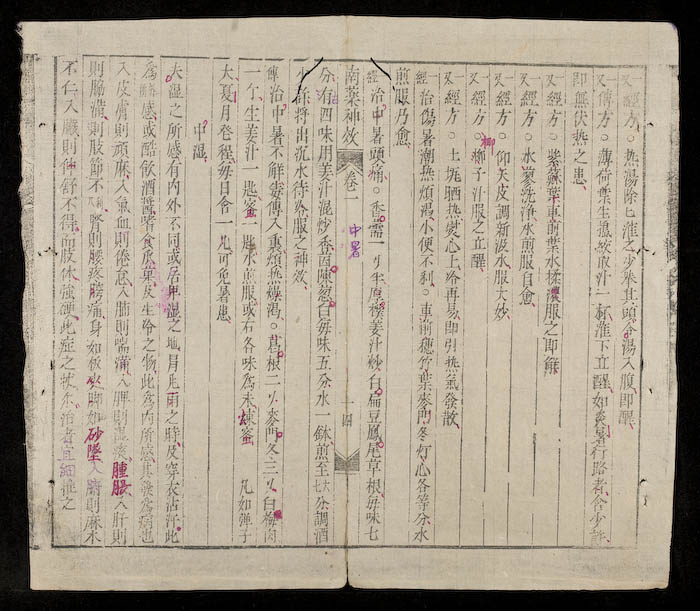 又經方○熱湯除已灌之少舉其頭令湯入腹即醒
又傳方○薄荷葉生搗絞取汁一杯灌下立醒如炎暑行路者含少許
即無伏熱之患
又經方○紫蘇葉車前葉水揉濃服之即解
又經方○水蓼洗淨水煎服自愈
又經方○仰天皮調新汲水服大妙
又經方○柳子汁服之立醒
又經方○土塊晒熱熨心上冷再易即引熱氣發散
經治傷暑潮熱煩渴小便不利○車前穗竹葉麥門冬灯心各等分水
煎服乃愈
經治中暑頭痛○香薷一刄半厚樸姜汁炒白扁豆鳳尾草根每味七
南藥神效 卷一 中暑 一四
分右四味用姜汁混炒香茵陳葱白每味五分水一鉢煎至七分調酒
少許將出沉水待冷服之神效
傳治中暑不解毒傳入裏煩熱燥渴○葛根二刄麥門冬三刄白梅肉
一刄生姜汁一匙蜜一匙水煎服或右各味為末煉蜜 丸如彈子
大夏月登程每日含一丸可免暑患
中濕
夫濕之所感有內外不同或居卑濕之地冒凡雨之時及穿衣沾汗此
為外感或酷飲酒醬嗜食瓜菓及生冷之物此為內所感其發為病也
入皮膚則頑麻入氣血則倦怠入肺則喘滿入脾則濕痰腫脹入肝則
則脇滿則肢節不利入腎則腰疼胯痛身如板夾脚如砂墜入腑則麻木
不仁入臟則伸舒不得而肢体強硬此症之狀焉治者宜細推之